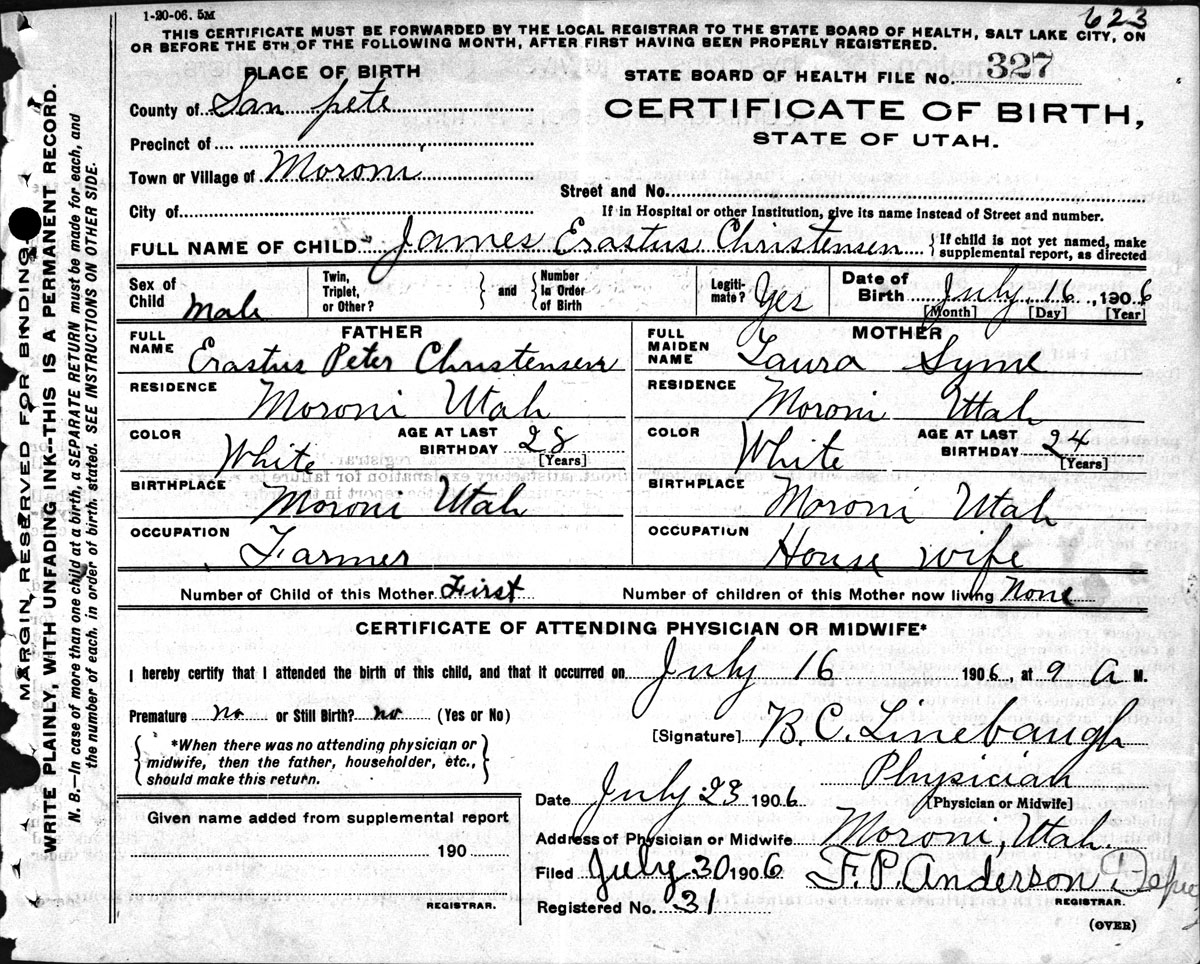 1-20-06. 5M
623
THIS CERTIFICATE MUST BE FORWARDED BY THE LOCAL REGISTRAR TO THE STATE BOARD OF HEALTH, SALT LAKE CITY, ON
OR BEFORE THE 5TH OF THE FOLLOWING MONTH, AFTER FIRST HAVING BEEN PROPERLY REGISTERED.
PLACE OF BIRTH
County of San pete
Precinct of
Town or Village of Moroni
City of
STATE BOARD OF HEALTH FILE No. 327
CERTIFICATE OF BIRTH,
STATE OF UTAH.
Street and No.
If in Hospital or other Institution, give its name instead of Street and number.
FULL NAME OF CHILD James Erastus Christensen { If child is not yet named, make
supplemental report, as directed
Sex of
Child Male
Twin,
Triplet,
or Other?
} and {
Number
in Order
of Birth
Legiti-
mate? Yes
Date of
Birth July 16, 1906
[Month] [Day] [Year]
FATHER
FULL
NAME Erastus Peter Christensen
RESIDENCE
Moroni Utah
COLOR
White
AGE AT LAST
BIRTHDAY 28
[Years]
BIRTHPLACE
Moroni Utah
OCCUPATION
Farmer
MOTHER
FULL
MAIDEN
NAME Laura Syme
RESIDENCE
Moroni Utah
COLOR
White
AGE AT LAST
BIRTHDAY 24
(Years]
BIRTHPLACE
Moroni Utah
OCCUPATION
House wife
Number of Child of this Mother First
Number of children of this Mother now living None
CERTIFICATE OF ATTENDING PHYSICIAN OR MIDWIFE*
I hereby certify that I attended the birth of this child, and that it occurred on July 16 1906, at 9 A M.
Premature no or Still Birth? no (Yes or No)
{ *When there was no attending physician or
midwife, then the father, householder, etc.,
should make this return. }
[Signature] B. C. Linebaugh
Physician
[Physician or Midwife]
Date July 23 1906
Address of Physician or Midwife Moroni, Utah.
Filed July 30 1906 F. P. Anderson
REGISTRAR.
Registered No. 31
(OVER)
Given name added from supplemental report
190
REGISTRAR.
MARGIN RESERVED FOR BINDING
WRITE PLAINLY, WITH UNFADING INK--THIS IS A PERMANENT RECORD.
N. B.—In case of more than one child at a birth, a SEPARATE RETURN must be made for each, and
the number of each, in order of birth, stated. SEE INSTRUCTIONS ON OTHER SIDE.